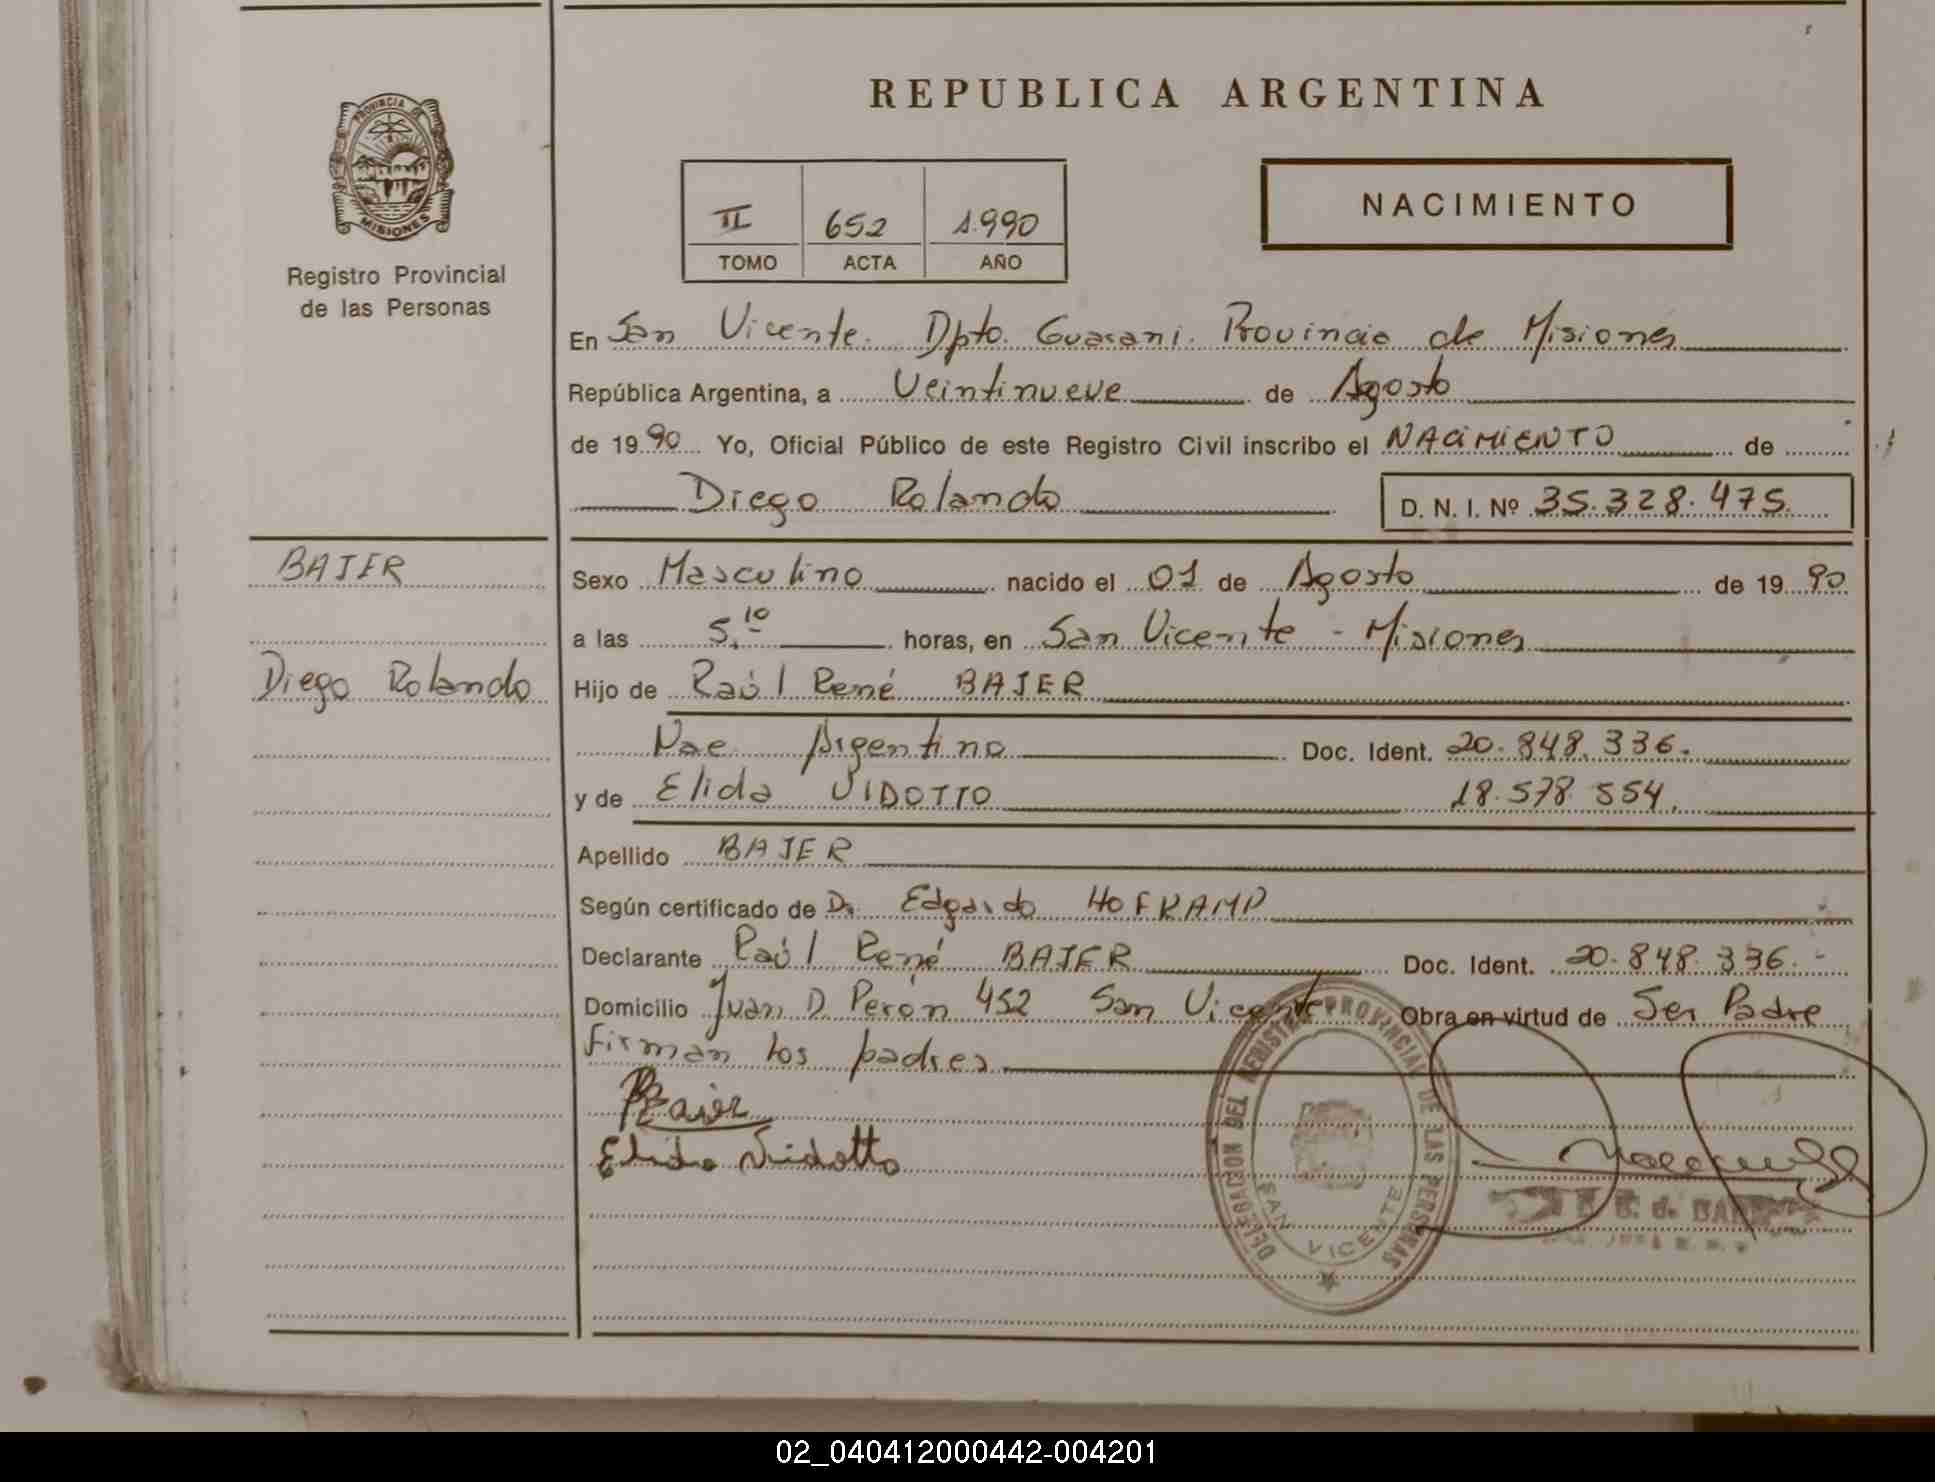 REPUBLICA ARGENTINA
PROVINCIA DE
MISIONES
Registro Provincial
de las Personas
II 652 1.990
TOMO ACTA AÑO
NACIMIENTO
En San Vicente. Dpto. Guarani. Provincia de Misiones
República Argentina, a Veintinueve de Agosto
de 1990 Yo, Oficial Público de este Registro Civil inscribo el NACIMIENTO de
Diego Rolando D. N. I. Nº 35.328.475.
BAJER
Diego Rolando
Sexo Masculino nacido el 01 de Agosto de 1990
a las 5.10 horas, en San Vicente - Misiones
Hijo de Raúl René BAJER
Nac Argentina Doc. Ident. 20.848.336.
y de Elida VIDOTTO 18.578.554.
Apellido BAJER
Según certificado de Dr. Edgardo HOFKAMP
Declarante Raúl René BAJER Doc. Ident. 20.848.336.-
Domicilio Juan D. Perón 452 San Vicente Obra en virtud de Ser Padre
Firman los padres
Elida Vidotto
DELEGACION DEL REGISTRO PROVINCIAL DE LAS PERSONAS
SAN VICENTE
02_040412000442-004201